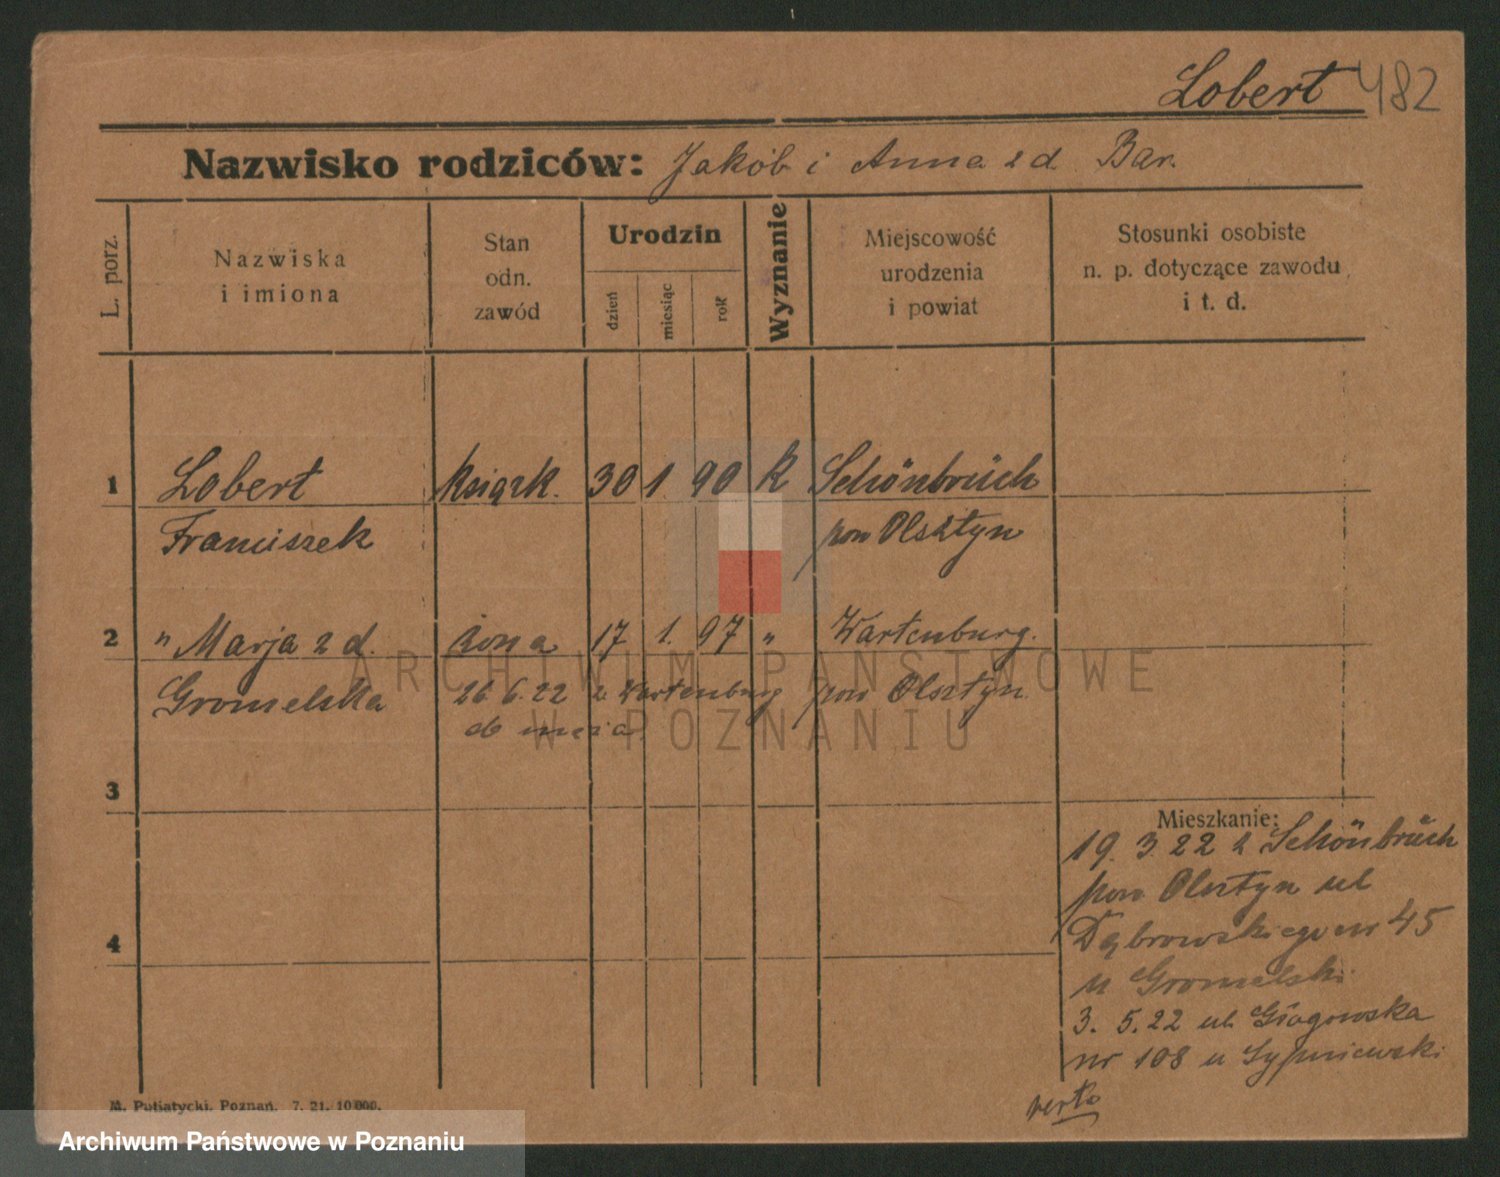 Lobert 482
Nazwisko rodziców: Jakób i Anna z d. Bar.
L. porz.
Nazwiska
i imiona
Stan
odn.
zawód
Urodzin
dzień
miesiąc
rok
Wyznanie
Miejscowość
urodzenia
i powiat
Stosunki osobiste
n. p. dotyczące zawodu
i t. d.
1 Lobert książk. 30 1 90 k Schönbrüch
Franciszek pow Olsztyn
2 " Marja z d. żona 17 1. 97 " Wartenburg.
Gromelska 26.6.22 z Wartenburg pow Olsztyn
do męża.
3
4
Mieszkanie:
19. 3. 22 z Schönbrüch
pow Olsztyn ul
Dąbrowskiego nr 45
u Gromelski
3. 5. 22 ul. Głogowska
nr 108 u Sypniewski
verto
M. Putiatycki, Poznań. 7. 21. 10000.
ARCHIWUM PAŃSTWOWE
W POZNANIU
Archiwum Państwowe w Poznaniu